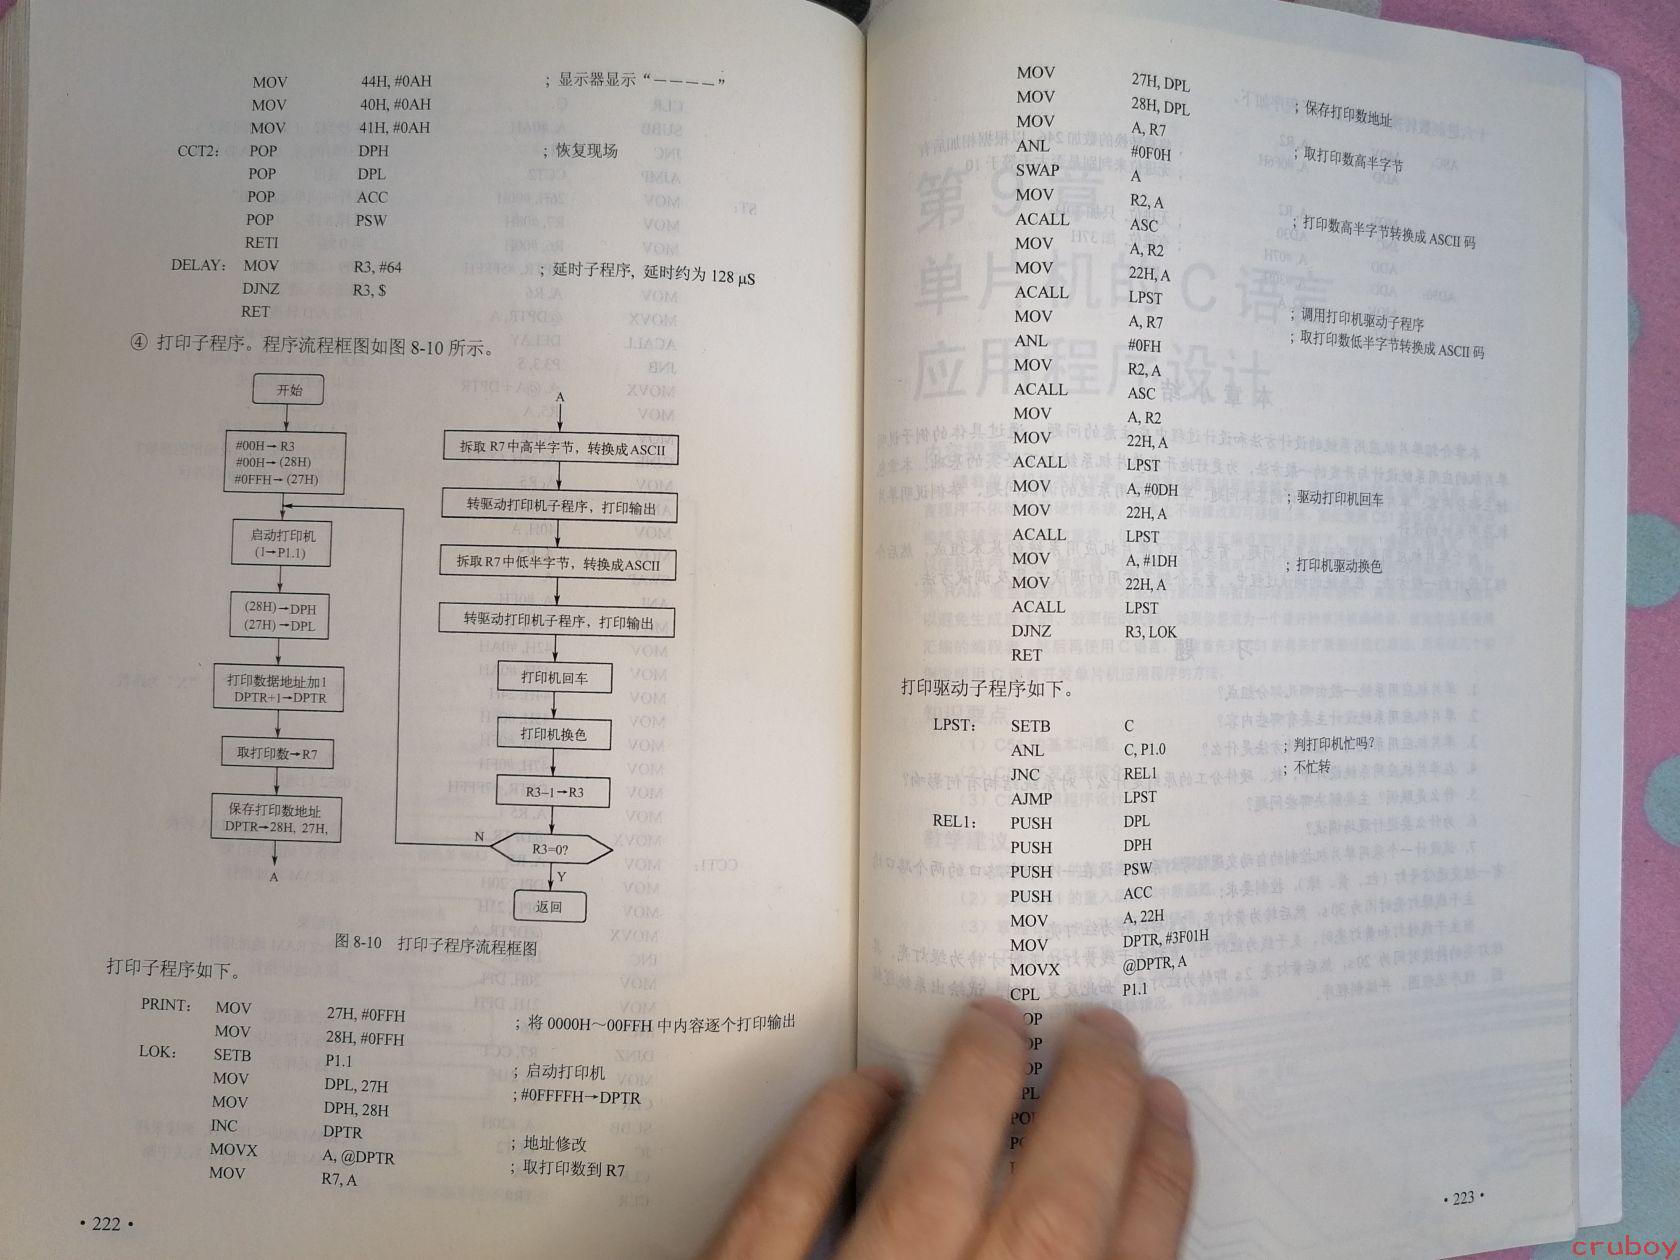 MOV 44H, #0AH ；显示器显示“－－－－”
MOV 40H, #0AH
MOV 41H, #0AH
CCT2： POP DPH ；恢复现场
POP DPL
POP ACC
POP PSW
RETI
DELAY： MOV R3, #64 ；延时子程序, 延时约为 128 μS
DJNZ R3, $
RET
④ 打印子程序。程序流程框图如图 8-10 所示。
开始
#00H→R3
#00H→(28H)
#0FFH→(27H)
启动打印机
(1→P1.1)
(28H)→DPH
(27H)→DPL
打印数据地址加1
DPTR+1→DPTR
取打印数→R7
保存打印数地址
DPTR→28H, 27H,
A
A
拆取 R7 中高半字节，转换成ASCII
转驱动打印机子程序，打印输出
拆取R7中低半字节，转换成ASCII
转驱动打印机子程序，打印输出
打印机回车
打印机换色
R3–1→R3
N
R3=0?
Y
返回
图 8-10 打印子程序流程框图
打印子程序如下。
PRINT： MOV 27H, #0FFH ；将 0000H～00FFH 中内容逐个打印输出
MOV 28H, #0FFH
LOK： SETB P1.1 ；启动打印机
MOV DPL, 27H ；#0FFFFH→DPTR
MOV DPH, 28H
INC DPTR ；地址修改
MOVX A, @DPTR ；取打印数到 R7
MOV R7, A
· 222 ·
MOV 27H, DPL
MOV 28H, DPL ；保存打印数地址
MOV A, R7
ANL #0F0H ；取打印数高半字节
SWAP A
MOV R2, A
ACALL ASC ；打印数高半字节转换成 ASCII 码
MOV A, R2
MOV 22H, A
ACALL LPST ；调用打印机驱动子程序
MOV A, R7 ；取打印数低半字节转换成 ASCII 码
ANL #0FH
MOV R2, A
ACALL ASC
MOV A, R2
MOV 22H, A
ACALL LPST
MOV A, #0DH ；驱动打印机回车
MOV 22H, A
ACALL LPST
MOV A, #1DH ；打印机驱动换色
MOV 22H, A
ACALL LPST
DJNZ R3, LOK
RET
打印驱动子程序如下。
LPST： SETB C
ANL C, P1.0 ；判打印机忙吗?
JNC REL1 ；不忙转
AJMP LPST
REL1： PUSH DPL
PUSH DPH
PUSH PSW
PUSH ACC
MOV A, 22H
MOV DPTR, #3F01H
MOVX @DPTR, A
CPL P1.1
· 223 ·
cruboy